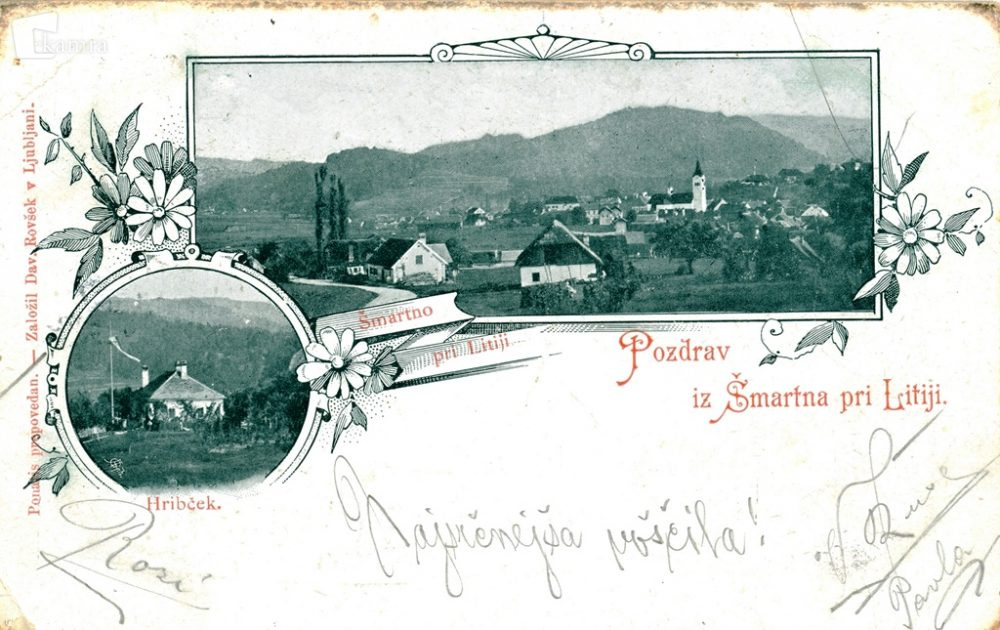 kamra
Ponatis prepovedan. — Založil Dav. Rovšek v Ljubljani.
Šmartno
pri Litiji
Pozdrav
iz Šmartna pri Litiji.
Hribček.
Najsrčnejša voščila!
Rozi
Pavla